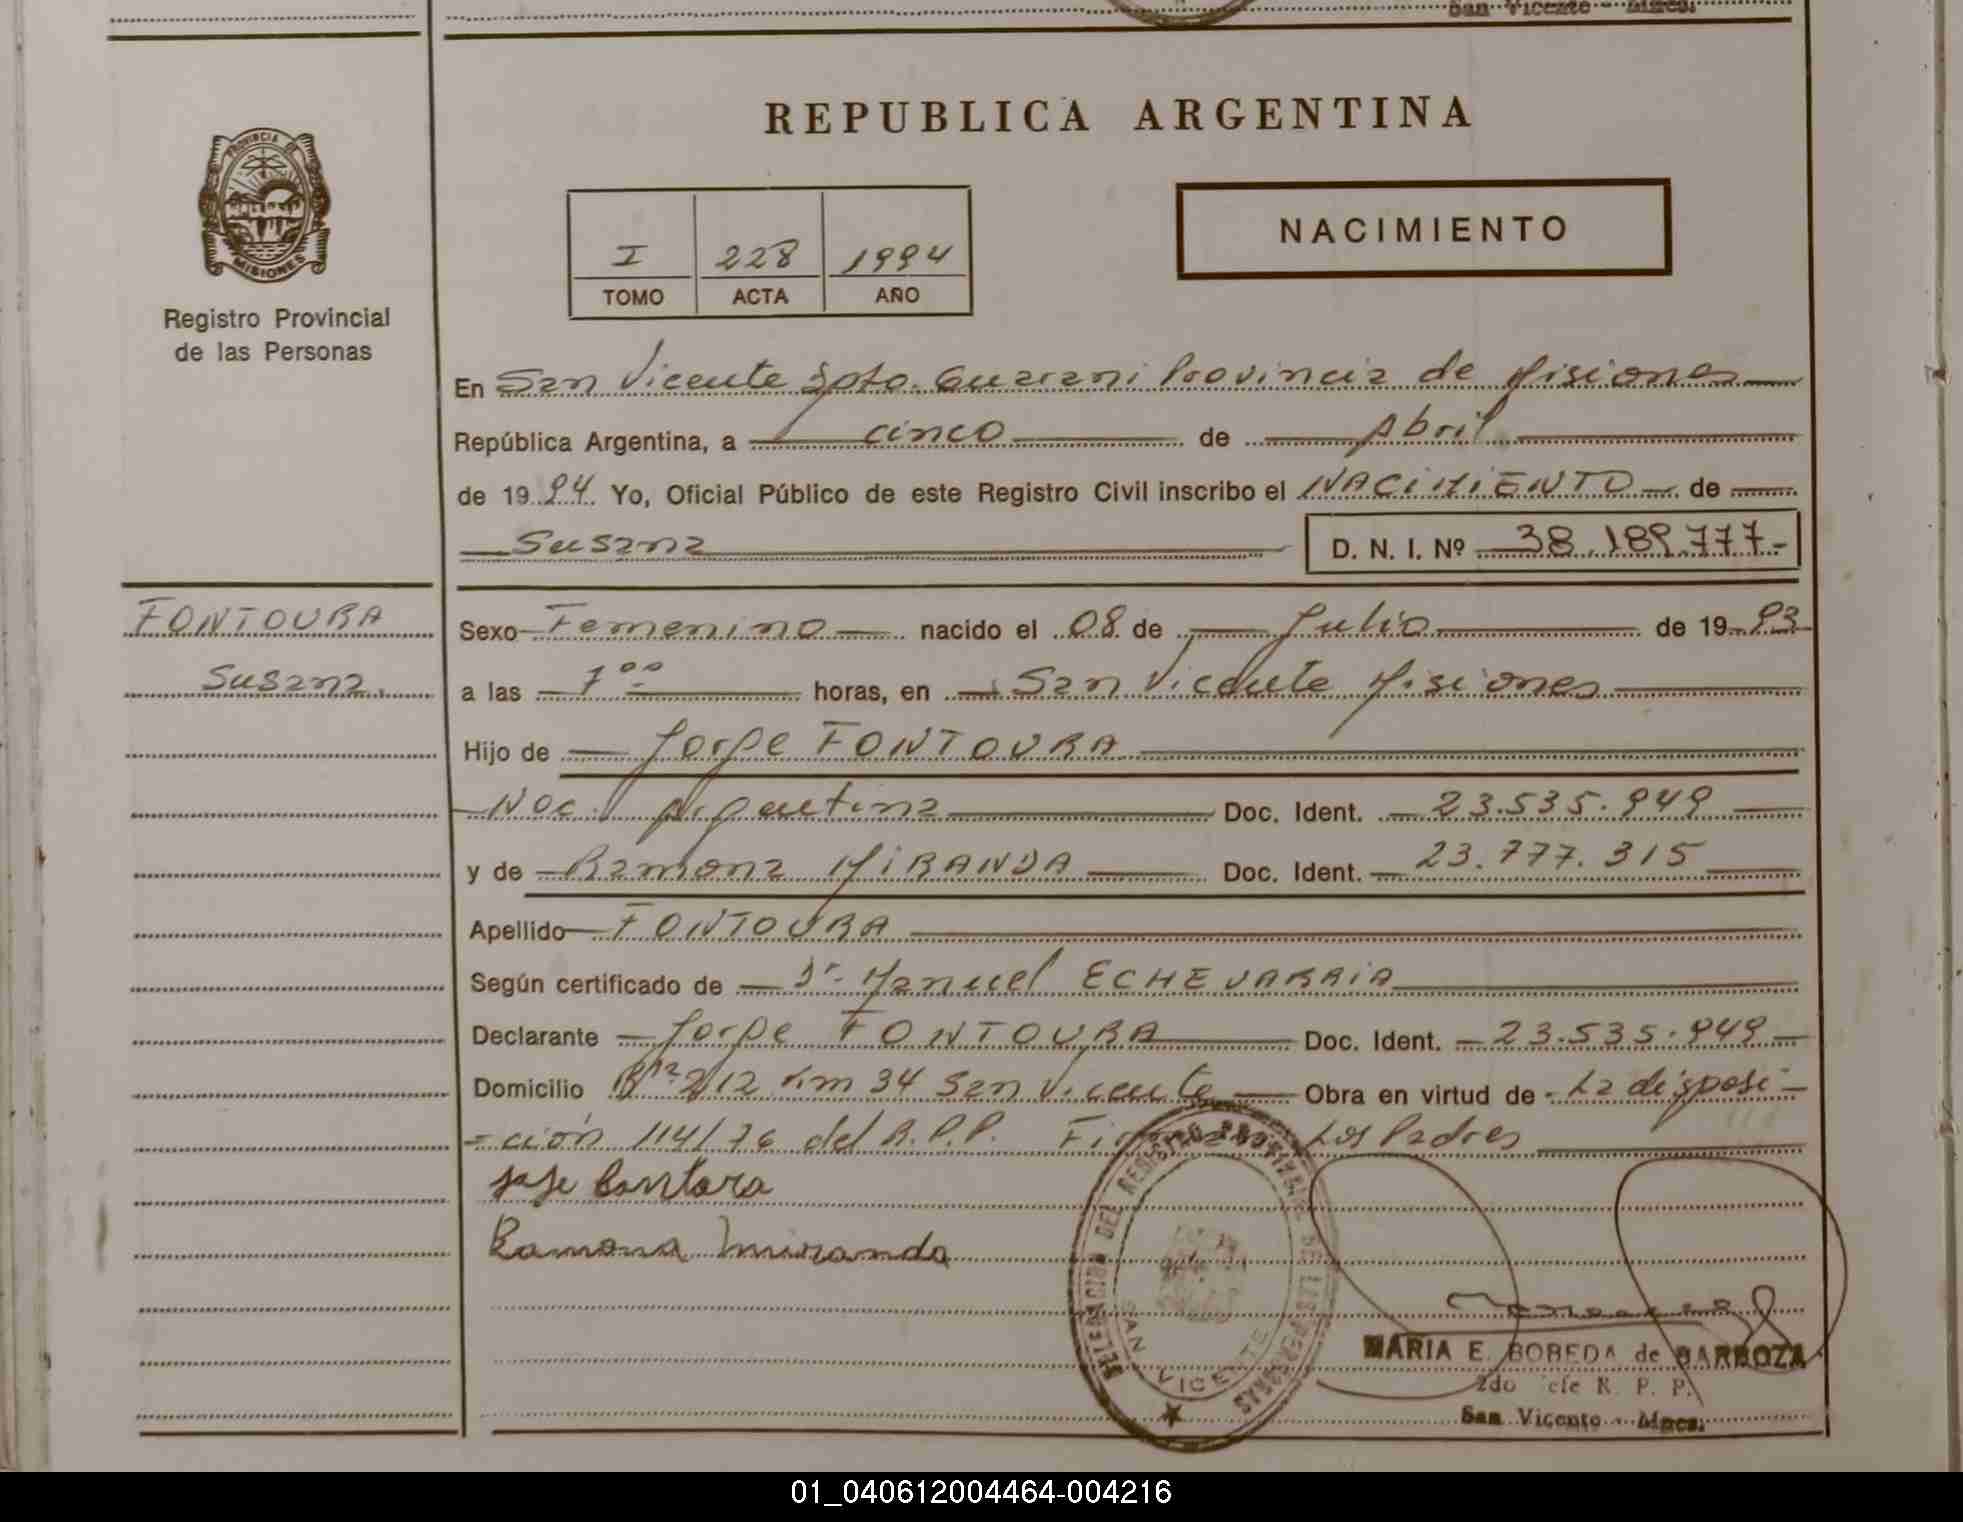 San Vicente - Mnes.
PROVINCIA DE
MISIONES
Registro Provincial
de las Personas
REPUBLICA ARGENTINA
I 228 1994
TOMO ACTA AÑO
NACIMIENTO
En San Vicente Dpto. Guarani Provincia de Misiones
República Argentina, a cinco de Abril
de 1994. Yo, Oficial Público de este Registro Civil inscribo el NACIMIENTO de
Susana D. N. I. Nº 38.189.777-
FONTOURA
Susana.
Sexo Femenino nacido el 08 de Julio de 1993
a las 7 ºº horas, en San Vicente Misiones
Hijo de Jorge FONTOURA
Nac. Argentina Doc. Ident. 23.535.949
y de Ramona MIRANDA Doc. Ident. 23.777.315
Apellido FONTOURA
Según certificado de Dr. Manuel ECHEVARRIA
Declarante Jorge FONTOURA Doc. Ident. 23.535.949
Domicilio Rta 212 Km 34 San Vicente Obra en virtud de La disposi-
-ción 114/76 del R.P.P. Firman Los Padres
Ramona Miranda
DELEGACION DEL REGISTRO PROVINCIAL DE LAS PERSONAS
SAN VICENTE
MARIA E. BOBEDA de BARBOZA
2do Jefe R. P. P.
San Vicente - Mnes.
01_040612004464-004216